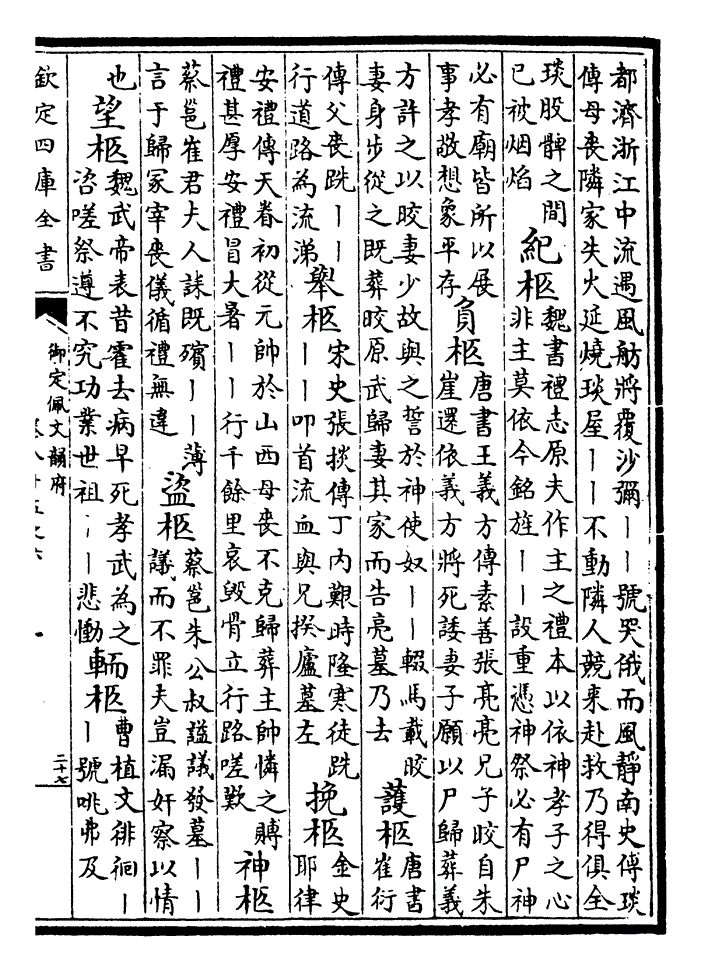 都濟浙江中流遇風舫將覆沙彌丨丨號哭俄而風靜南史傅琰
傳母喪隣家失火延燒琰屋丨丨不動隣人競来赴救乃得俱全
琰股髀之間
已被烟焰
紀柩
魏書禮志原夫作主之禮本以依神孝子之心
非主莫依今銘旌丨丨設重憑神祭必有尸神
必有廟皆所以展
事孝敬想象平存
負柩
唐書王義方傳素善張亮亮兄子晈自朱
崖還依義方將死諉妻子願以尸歸葬義
方許之以晈妻少故與之誓於神使奴丨丨輟馬載晈
妻身步從之既葬晈原武歸妻其家而告亮墓乃去
護柩
唐書
崔衍
傳父喪跣丨丨
行道路為流涕
舉柩
宋史張掞傳丁内艱時隆寒徒跣
丨丨叩首流血與兄揆廬墓左
挽柩
金史
耶律
安禮傳天眷初從元帥於山西母喪不克歸葬主帥憐之賻
禮甚厚安禮冒大暑丨丨行千餘里哀毀骨立行路嗟歎
神柩
蔡邕崔君夫人誄既殯丨丨薄
言于歸冢宰喪儀循禮無違
盜柩
蔡邕朱公叔諡議發墓丨丨
議而不罪夫豈漏奸察以情
也
望柩
魏武帝表昔霍去病早死孝武為之
咨嗟祭遵不究功業世祖丨丨悲慟
轜柩
曹植文徘徊丨
丨號咷弗及
欽定四庫全書
御定佩文韻府
二十七